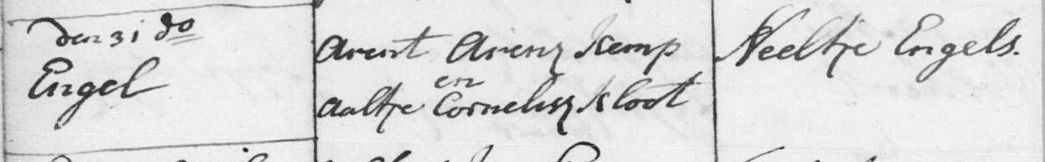 den 31 do
Engel
Arent Arensz Kemp
en
Aaltje Cornelisz Kloot
Neeltje Engels.